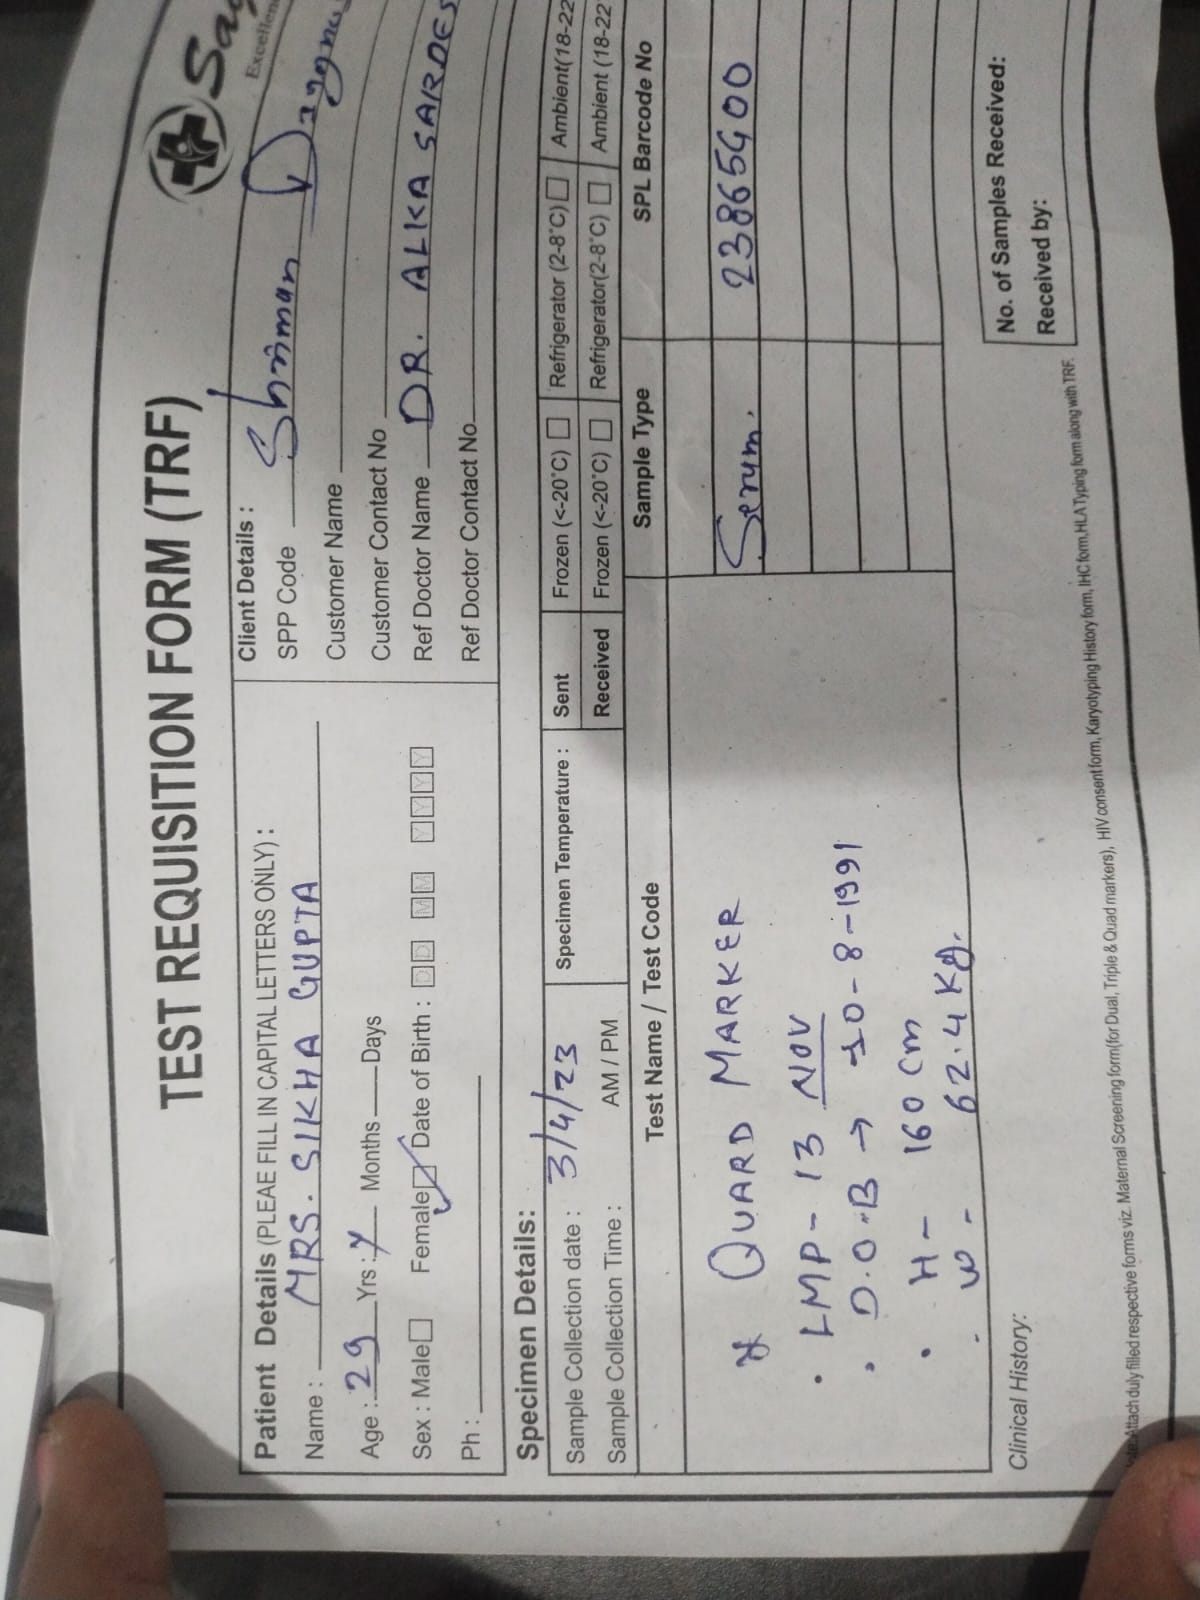 TEST REQUISITION FORM (TRF)
Excellen
Patient Details (PLEAE FILL IN CAPITAL LETTERS ONLY) :
Name : MRS. SIKHA GUPTA
Age : 29 Yrs : Y Months Days
Sex : Male Female Date of Birth : DD MM YYYY
Ph :
Client Details :
SPP Code Shriman
Customer Name
Customer Contact No
Ref Doctor Name DR. ALKA SARDES
Ref Doctor Contact No.
Specimen Details:
Sample Collection date : 3/4/23
Sample Collection Time : AM / PM
Specimen Temperature :
Sent Frozen (<-20°C) Refrigerator (2-8°C) Ambient(18-22
Received Frozen (<-20°C) Refrigerator(2-8°C) Ambient (18-22
Test Name / Test Code Sample Type SPL Barcode No
QUARD MARKER Serum. 23865900
• LMP - 13 NOV
• D.O.B → 10-8-1991
• H - 160 cm
• W - 62.4 Kg.
Clinical History:
No. of Samples Received:
Received by:
Attach duly filled respective forms viz. Maternal Screening form(for Dual, Triple & Quad markers), HIV consent form, Karyotyping History form, IHC form, HLA Typing form along with TRF.